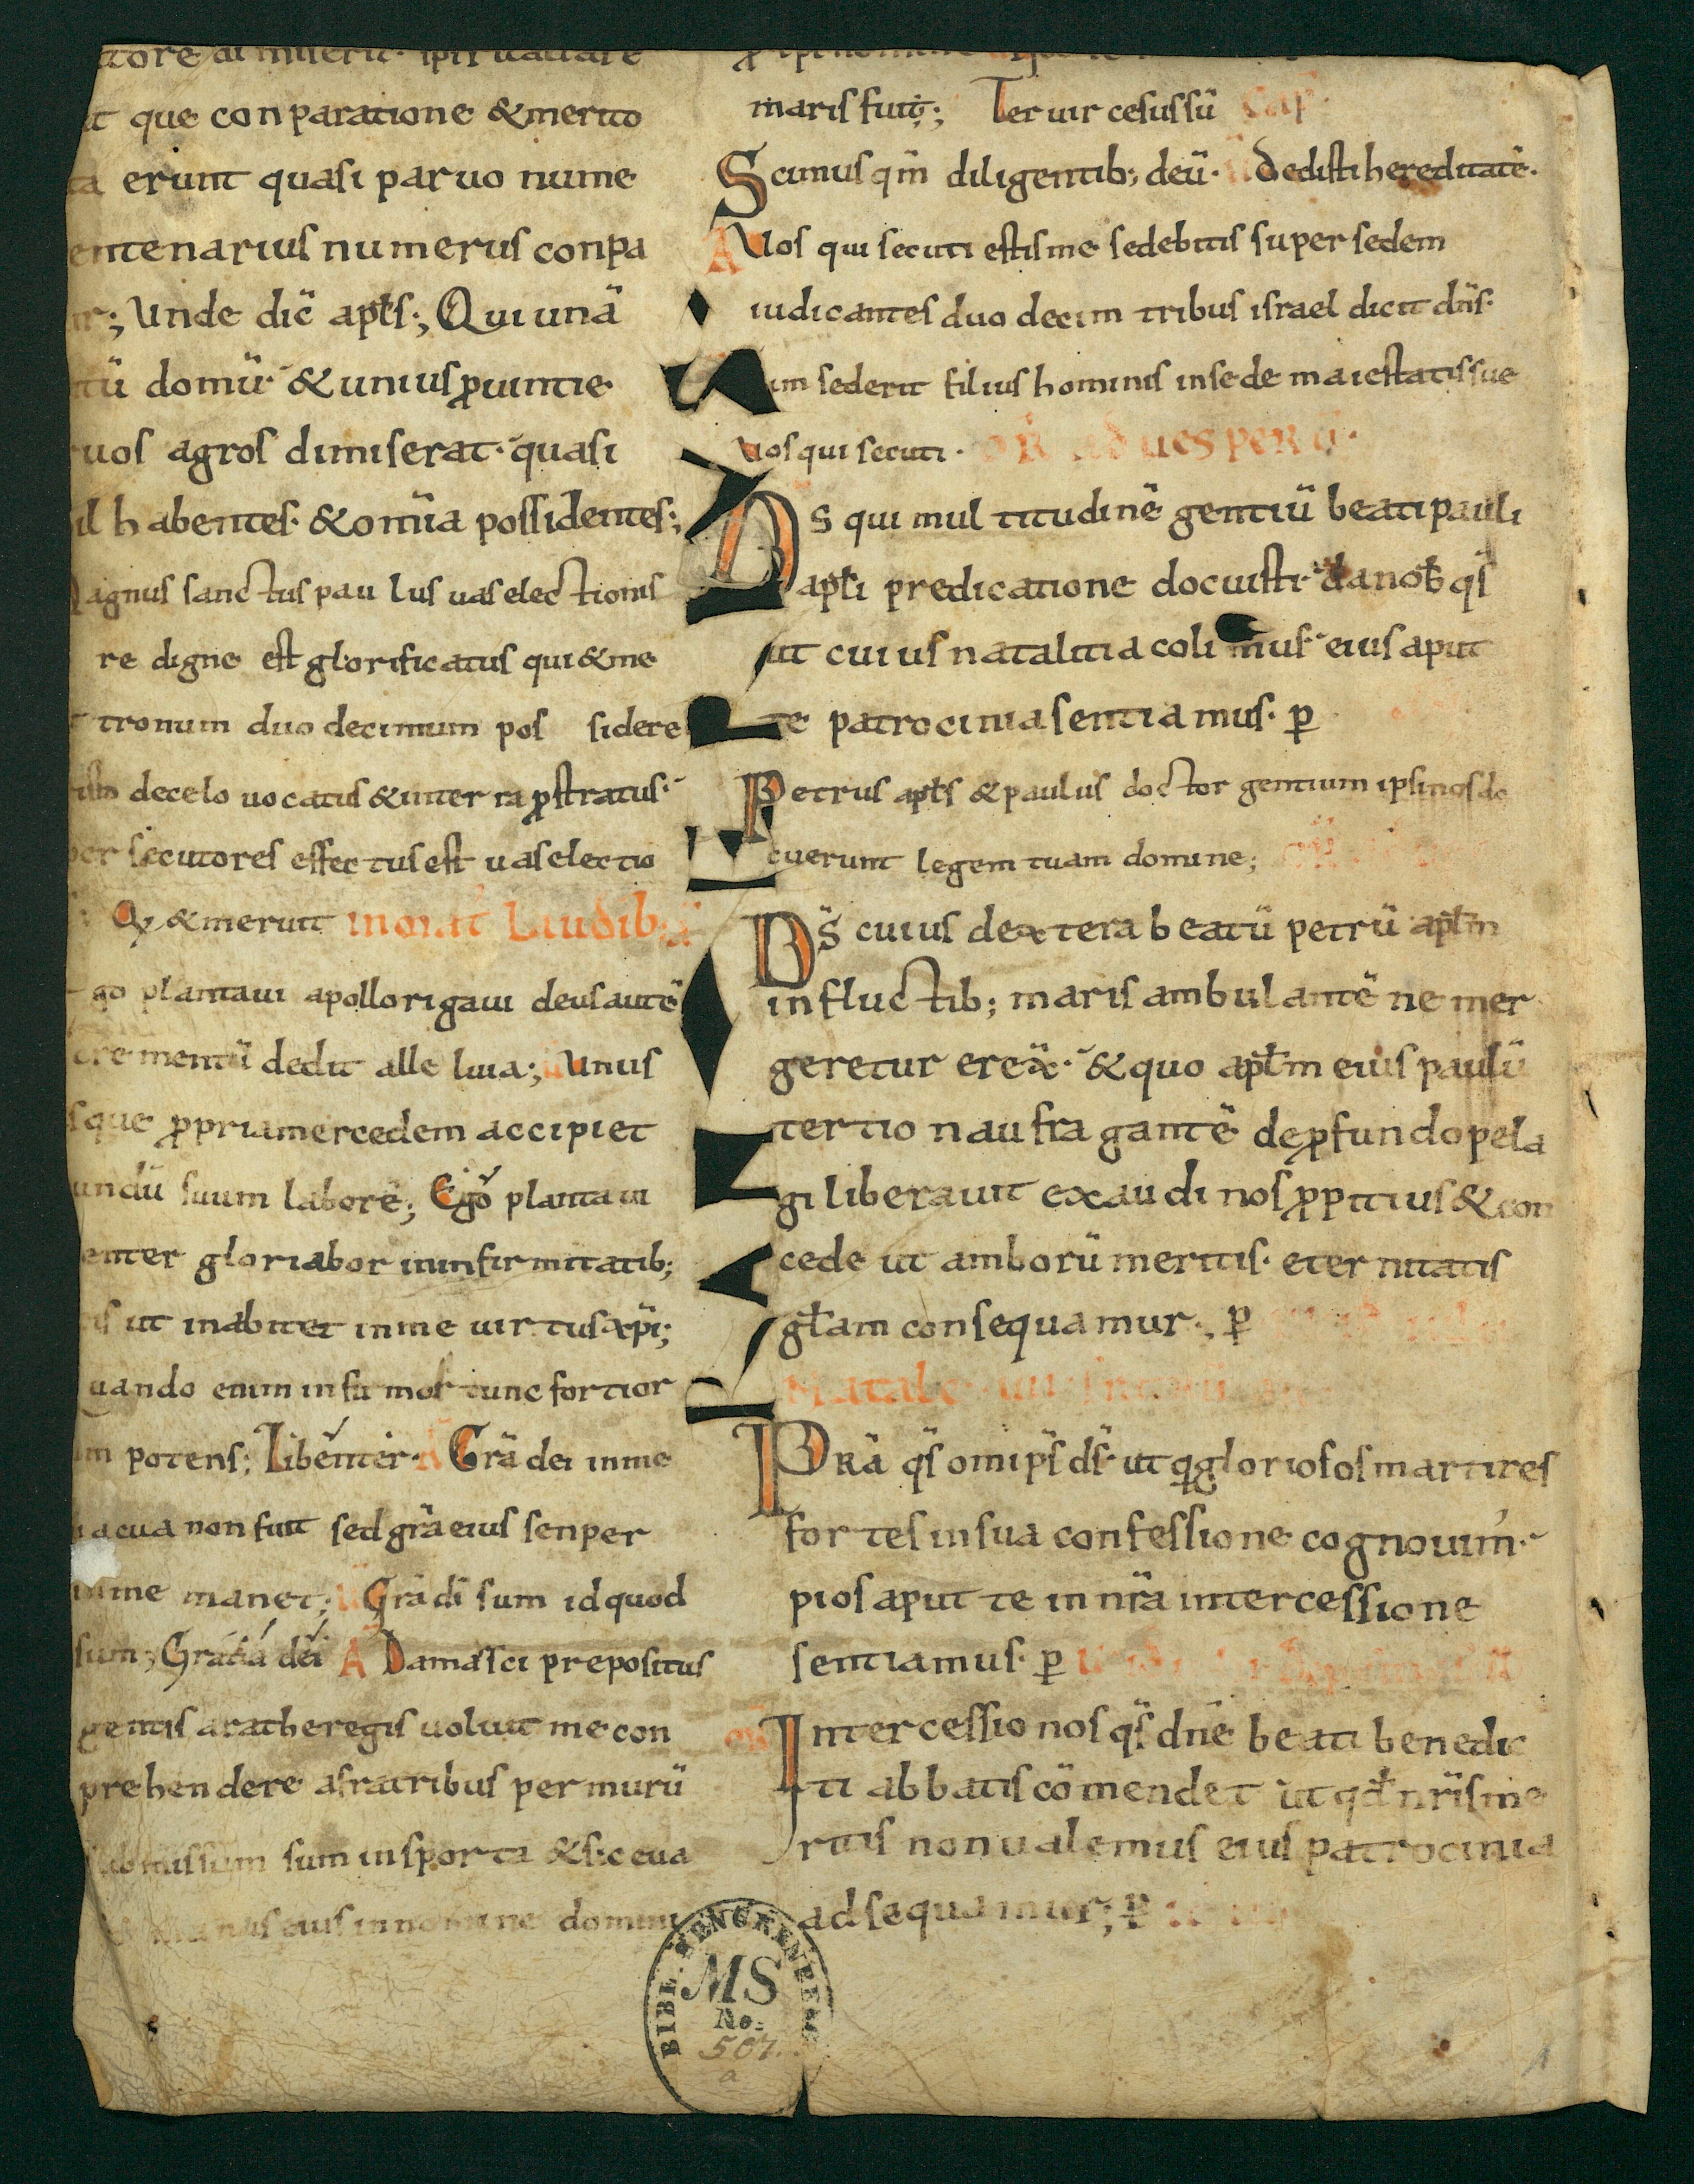 que conparatione & merito
erunt quasi paruo nume
entenarius numerus conpa
Unde dic̄ apl̄s; Qui unā
domū & unius ꝓuintie
uos agros dimiserat quasi
il habentes & om̄ia possidentes;
agnus sanctus paulus uas electionis
re digne est glorificatus qui & me
tronum duodecimum possidere
decelo uocatus & inter ra ꝓstratus
per secutores effectus est uas electio
Qꝫ & meruit Laudibꝫ
go plantaui apollo rigaui deus autē
crementū dedit alleluia; Unus
sque ꝓpria mercedem accipiet
undū suum laborē; Ego plantaui
enter gloriabor in infirmitatibꝫ
ut inabitet in me uirtus xp̄i;
uando enim infirmor tunc fortior
potens; Libenter Grā dei in me
uacua non fuit sed grā eius senper
in me manet; Grā dī sum id quod
sum; Gratia dei A Damasci prepositus
gentis arathe regis uoluit me con
prehendere a fratribus per murū
submissum sum in sporta & sic eua
manus eius in nomine domini
maris fui; Ter uir cesus sū Cap
Scimus qm̄ diligentibꝫ deū Dedisti hereditatē
A Uos qui secuti estis me sedebitis super sedem
iudicantes duodecim tribus israel dicit dn̄s
um sederit filius hominis in sede maiestatis sue
Uos qui secuti OR ad uesperū
DS qui multitudinē gentiū beati pauli
apl̄i predicatione docuisti da nob̄ qs̄
ut cuius natalitia colimus eius aput
te patrocinia sentiamus ꝑ
Petrus apl̄s & paulus doctor gentium ipsi nos do
cuerunt legem tuam domine;
DS̄ cuius dextera beatū petrū apl̄m
in fluctibꝫ maris ambulantē ne mer
geretur erex̄ & quo apl̄m eius paulū
tertio naufragantē de ꝓfundo pela
gi liberauit exaudi nos ꝓpitius & con
cede ut amborū meritis eternitatis
gl̄am consequamur ꝑ
Natale
PRĀ qs̄ om̄ips̄ ds̄ ut qi gloriosos martires
fortes in sua confessione cognouim̄
pios aput te in nr̄a intercessione
sentiamus ꝑ
Intercessio nos qs̄ dn̄e beati benedic
ti abbatis cōmendet ut qd̄ nr̄is me
ritis non ualemus eius patrocinia
adsequamur; ꝑ
BIBL. SENCKENBERG
MS
No.
501
a
1